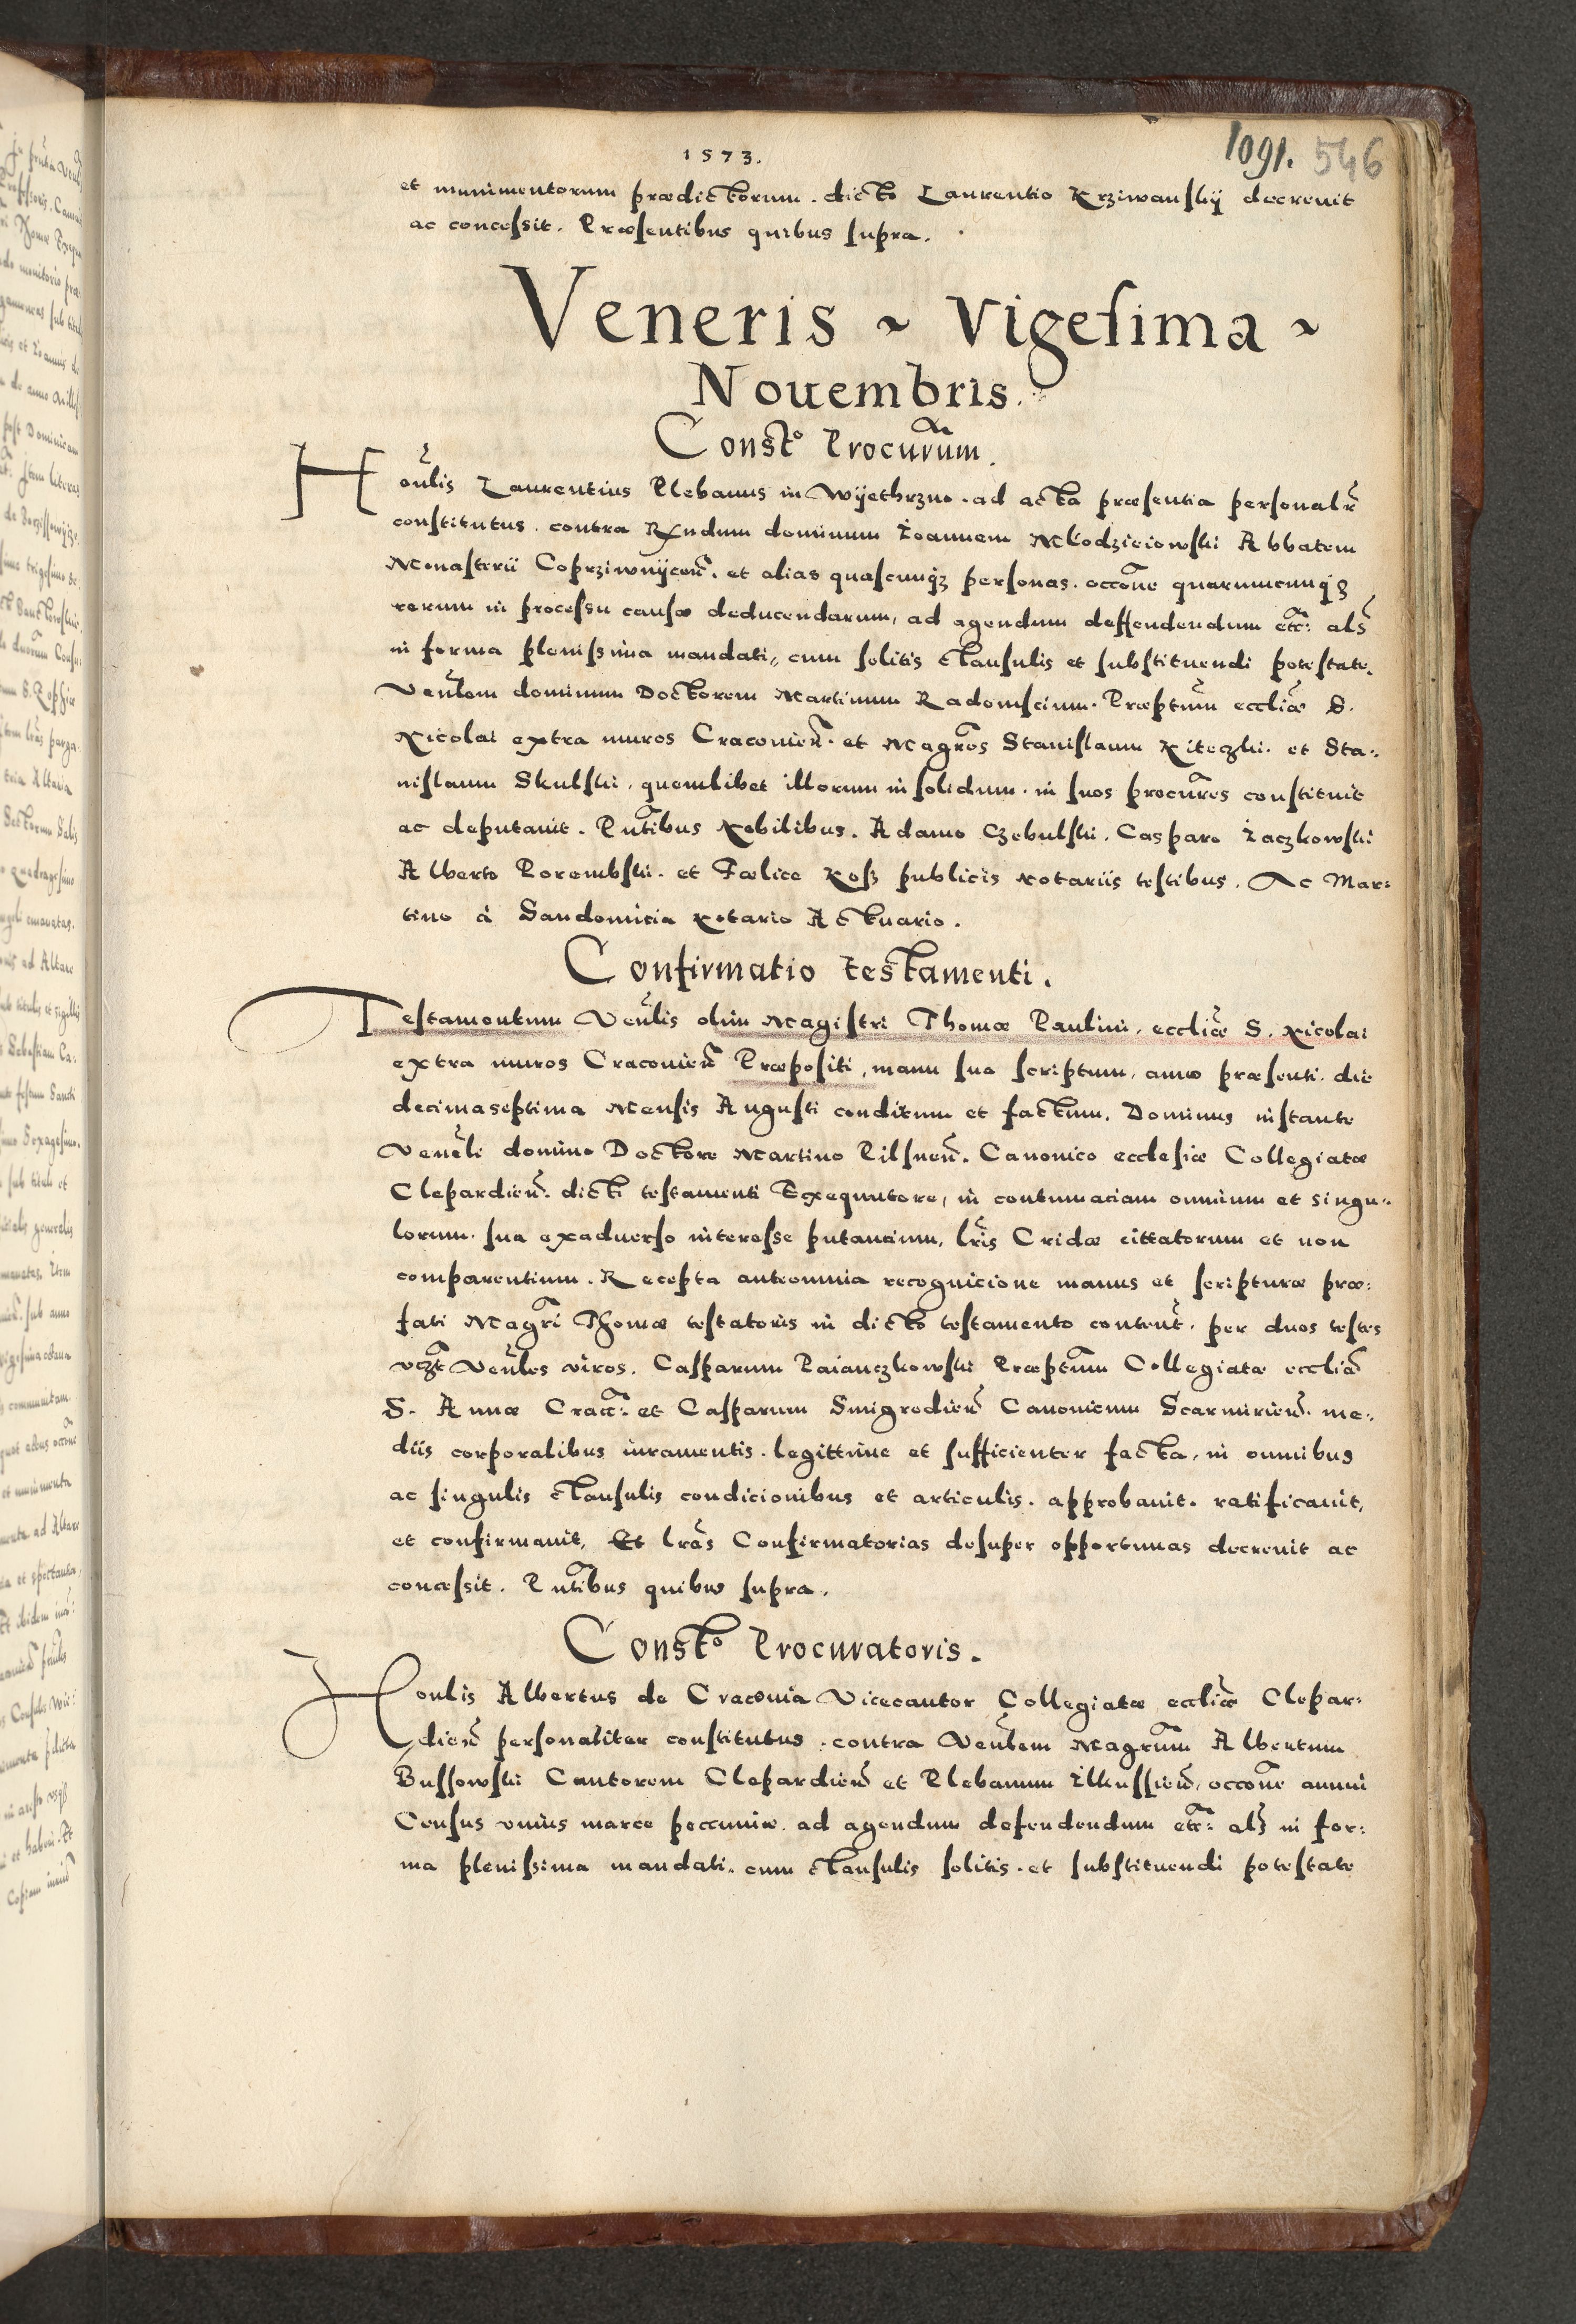 1573.
1091. 546
et munimentorum prædictorum. dicto Laurentio Krziwanskÿ decreuit
ac concessit. Præsentibus quibus supra.
Veneris ~ Vigesima ~
Nouembris.
Constᵒ Procurūm.
Honūlis Laurentius Plebanus in Wÿethrzno. ad acta præsentia personalr̄
constitutus. contra Rndum dominum Ioannem Mlodzieiowski Abbatem
Monasterii Coprziwnÿcen̄. et alias quascunqȝ personas. occōne quarumcunqȝ
rerum in processu causæ deducendarum, ad agendum deffendendum etc̄: als
in forma plenissima mandati, cum solitis clausulis et substituendi potestate.
Venlem dominum Doctorem Martinum Radomscium. Præptum̄ eccliæ S.
Nicolai extra muros Cracouien̄. et Magr̄os Stanislaum Kiteczki. et Sta-
nislaum Skulski. quemlibet illorum in solidum. in suos procūres constituit
ac deputauit. Pntībus Nobilibus. Adamo Czebulski. Casparo Zaczkowski
Alberto Porembski. et Fœlice Koss publicis Notariis testibus. Ac Mar:
tino à Sandomiria Notario Actuario.
Confirmatio testamenti.
Testamentum Venlis olim Magistri Thomæ Paulini, eccliæ S. Nicolai
extra muros Cracouien̄ Præpositi, manu sua scriptum, anno præsenti. die
decimaseptima Mensis Augusti conditum et factum. Dominus instante
Venēli domino Doctore Martino Pilsnen̄. Canonico ecclesiæ Collegiatæ
Clepardien̄. dicti testamenti Exequutore, in contumatiam omnium et singu-
lorum. sua exaduerso interesse putantium, lris Cridæ cittatorum et non
comparentium. Recepta anteomnia recognicione manus et scripturæ præ:
fati Magr̄i Thomæ testatoris in dicto testamento content̄. per duos testes
vczt̄ Venles viros. Casparum Paianczkowski Præptum̄ Collegiatæ eccliæ
S. Annæ Crac̄: et Casparum Smigrodien̄ Canonicum Scarmirien̄. me-
diis corporalibus iuramentis. legittime et sufficienter facta, in omnibus
ac singulis clausulis condicionibus et articulis. approbauit. ratificauit,
et confirmauit, Et lrās Confirmatorias desuper opportunas decreuit ac
concessit. Pntībus quibus supra.
Constᵒ Procuratoris.
Honlis Albertus de Cracouia Vicecantor Collegiatæ eccliæ Clepar:
dien̄ personaliter constitutus. contra Venlem Magrūm Albertum
Bussowski Cantorem Clepardien̄ et Plebanum Ilkussien̄, occōne annui
Census vnius marce peccuniæ. ad agendum defendendum etc̄: als in for:
ma plenissima mandati. cum clausulis solitis. et substituendi potestate